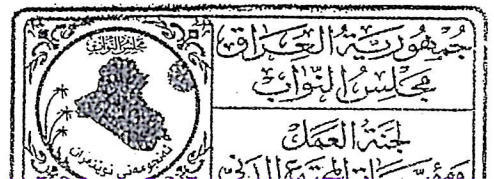 جمهورية العراق
مجلس النواب
لجنة العمل
ومؤسسات المجتمع المدني
مجلس النواب
ئەنجومەنی نوێنەران